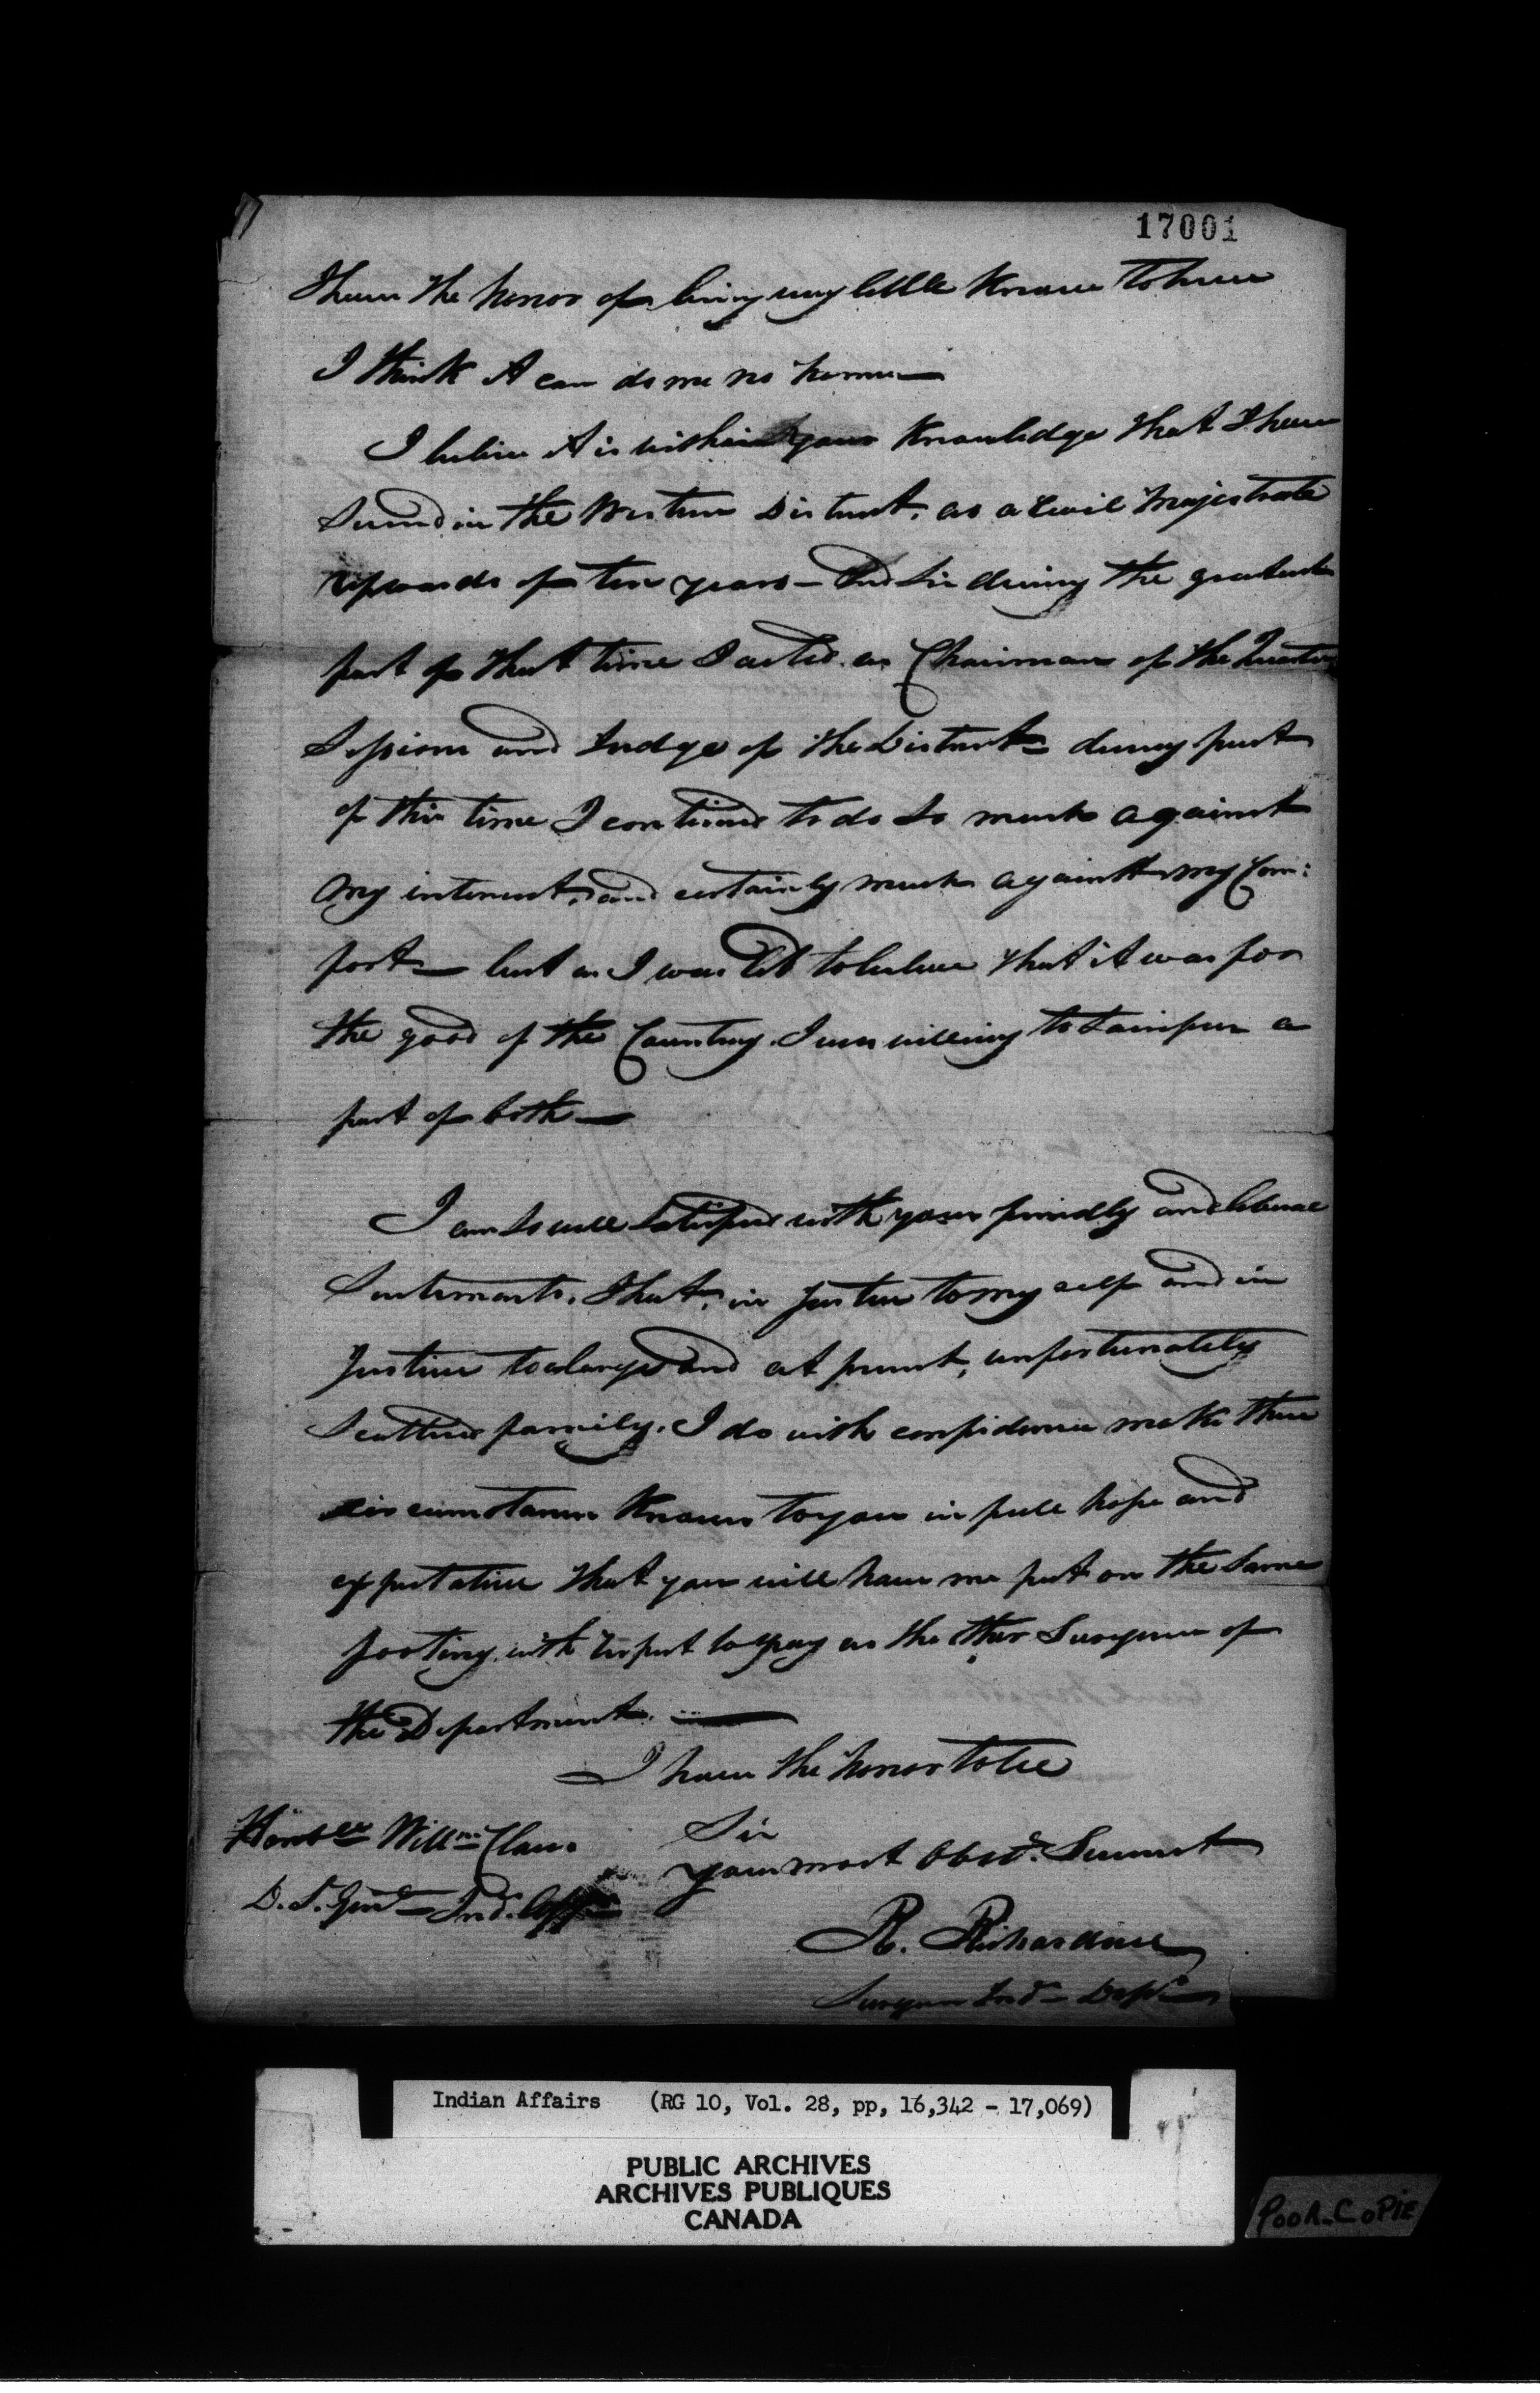 17001
I have the honor of being very little known to him
I think it can do me no harm —
I believe it is within your knowledge that I have
served in the Western District, as a Civil Majestrate
upwards of ten years — And Sir during the greatest
part of that time I acted as Chairman of the Quarter
Sessions and Judge of the District — during part
of this time I continued to do so much against
my interest, and certainly much against my Com:
fort — but as I was led to believe that it was for
the good of the Country. I was willing to a
part of both —
I am so well satisfied with your friendly and liberal
Sentiments, that, in justice to my self and in
Justice to a large and at present, unfortunately
Scattered family. I do with confidence make these
circumstances known to you in full hope and
expectation that you will have me put on the same
footing with respect to pay as the other Surgeons of
the Department. —
I have the honor to be
Sir
Your most Obedt. Servant
R. Richardson
Surgeon Indn. Dept.
Honble Willm Claus
D. S. Genl. Ind. Affrs
Indian Affairs (RG 10, Vol. 28, pp, 16,342 - 17,069)
PUBLIC ARCHIVES
ARCHIVES PUBLIQUES
CANADA
POOR-COPIE